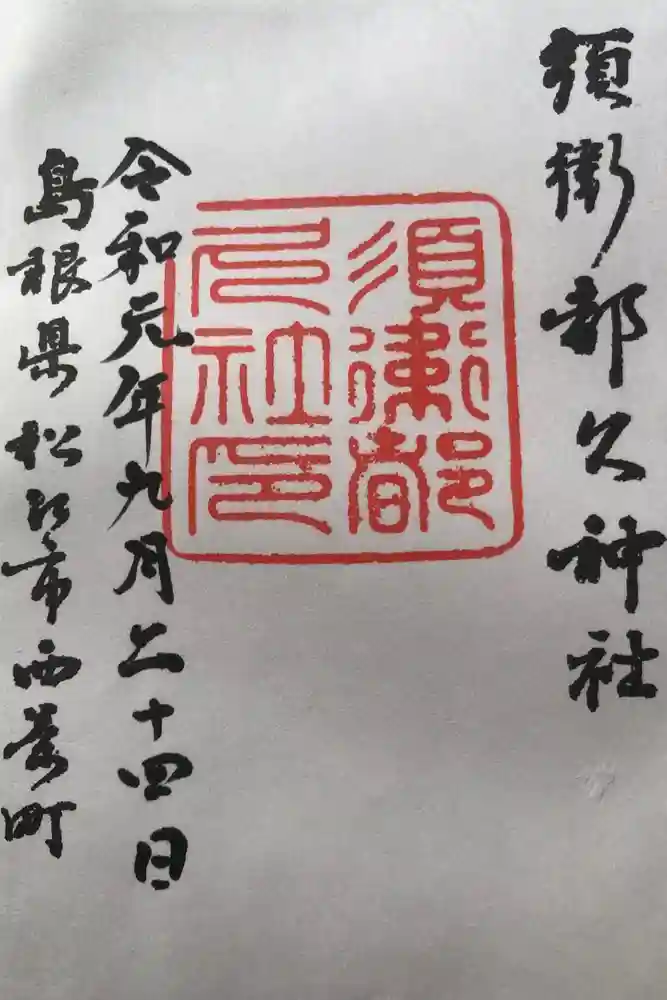 須衛都久神社
須衛都
久社印
令和元年九月二十四日
島根県松江市西茶町